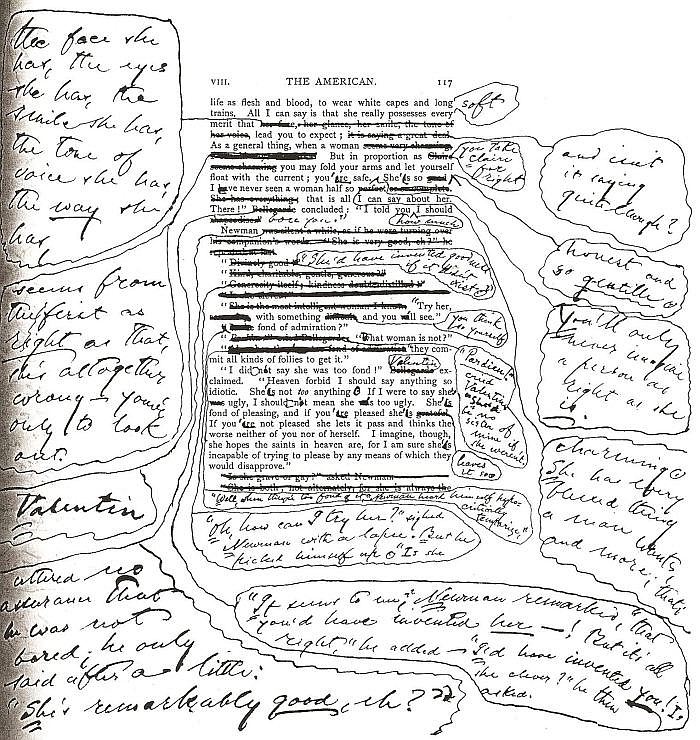 the face she
has, the eyes
she has, the
smile she has,
the tone of
voice she has,
the way she
has
seems from
the first as
right as that,
it's altogether
wrong — you've
only to look
out.
Valentin
uttered no
assurance that
he was not
bored; he only
said after a little:
"She's remarkably good, eh?"
VIII. THE AMERICAN. 117
life as flesh and blood, to wear white capes and long
soft
trains. All I can say is that she really possesses every
merit that her face, her glance, her smile, the tone of
her voice, lead you to expect; it is saying a great deal.
As a general thing, when a woman seems very charming,
But in proportion as Claire
you take
Claire
for
right
seems charming you may fold your arms and let yourself
float with the current; you're safe. She's so good
I've never seen a woman half so perfect or so complete.
She has everything; that is all I can say about her.
There!" Bellegarde concluded: "I told you I should
rhapsodise." bore you."
how much
Newman was silent a while, as if he were turning over
his companion's words. "She is very good, eh?" he
repeated at last.
"Divinely good!"
"She'd have invented goodness
if it didn't
exist."
"Kind, charitable, gentle, generous?"
"Generosity itself; kindness double-distilled!"
"Is she clever?"
"She is the most intelligent woman I know. "Try her,
with something difficult, and you'll see."
you think
so yourself
"Is she fond of admiration?"
"What woman is not?"
they com-
mit all kinds of follies to get it."
Valentin
"I didn't say she was too fond!" Bellegarde ex-
claimed. "Heaven forbid I should say anything so
idiotic. She's not too anything! If I were to say she
was ugly, I shouldn't mean she was too ugly. She's
fond of pleasing, and if you're pleased she's grateful.
If you're not pleased she lets it pass and thinks the
worse neither of you nor of herself. I imagine, though,
she hopes the saints in heaven are, for I am sure she's
incapable of trying to please by any means of which they
would disapprove."
"Is she grave or gay?" asked Newman.
"She is both; not alternately, for she is always the
"Pardieu!"
cried
Valentin
no
sister of
mine if
she weren't.
leaves
it so
"Well, when they're too fond of it," Newman heard himself
temporise,"
"Oh, how can I try her?" sighed
Newman with a lapse. But he
picked himself up. "Is she
and isn't
it saying
quite enough?
honest and
so gentle
You'll only
never imagine
a person as
right as she
is.
charming
She has every
blessed thing
a man wants
and more; that's
"It seems to me," Newman remarked, "that
you'd have invented her —! But it's all
right," he added — "I'd have invented you! Is
she clever?" he then
asked.